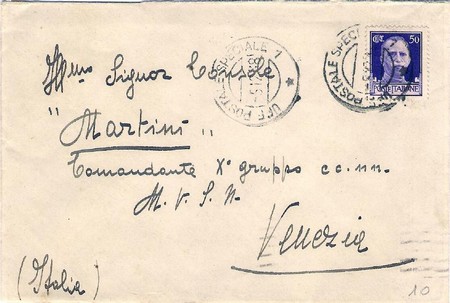 CENT. 50
POSTE ITALIANE
UFF. POSTALE SPECIALE 7
UFF. POSTALE SPECIALE
Ill.mo Signor Console
" Martini "
Comandante X° gruppo cc. nn.
M. V. S. N.
Venezia
(Italia)
10